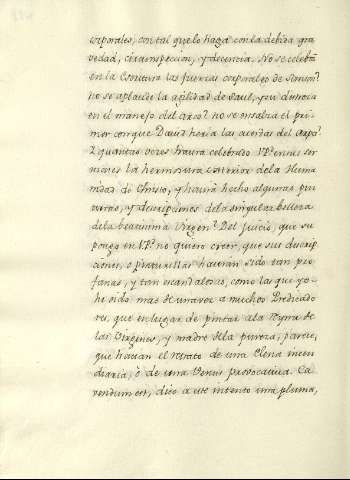 corporales, con tal que lo haga con la debida gra
vedad, circunspeccion, y decencia. No se celebra
en la Escritura las fuerzas corporales de Sanson?
no se aplaude la agilidad de Saul, y su destreza
en el manejo del arco? no se ensalza el pri-
mor con que David heria las cuerdas del Arpa?
Y quantas veces havrà celebrado Vm. en sus ser
mones la hermosura exterior de la Huma
nidad de Christo, y havrà hecho algunas pin
turas, y descripciones de la singular belleza
de la beatissima Virgen? Del juicio, que su
pongo en Vm. no quiero creer, que sus descrip
ciones, o pinturillas havran sido tan pro
fanas, y tan escandalosas, como las que yo
he oido mas de una vez a muchos Predicado
res, que en lugar de pintar a la Reyna de
las Virgenes, y madre de la pureza, parece,
que hacian el retrato de una Elena incen
diaria, ò de una Venus provocativa. Ca
vendum est, dice a este intento una pluma,